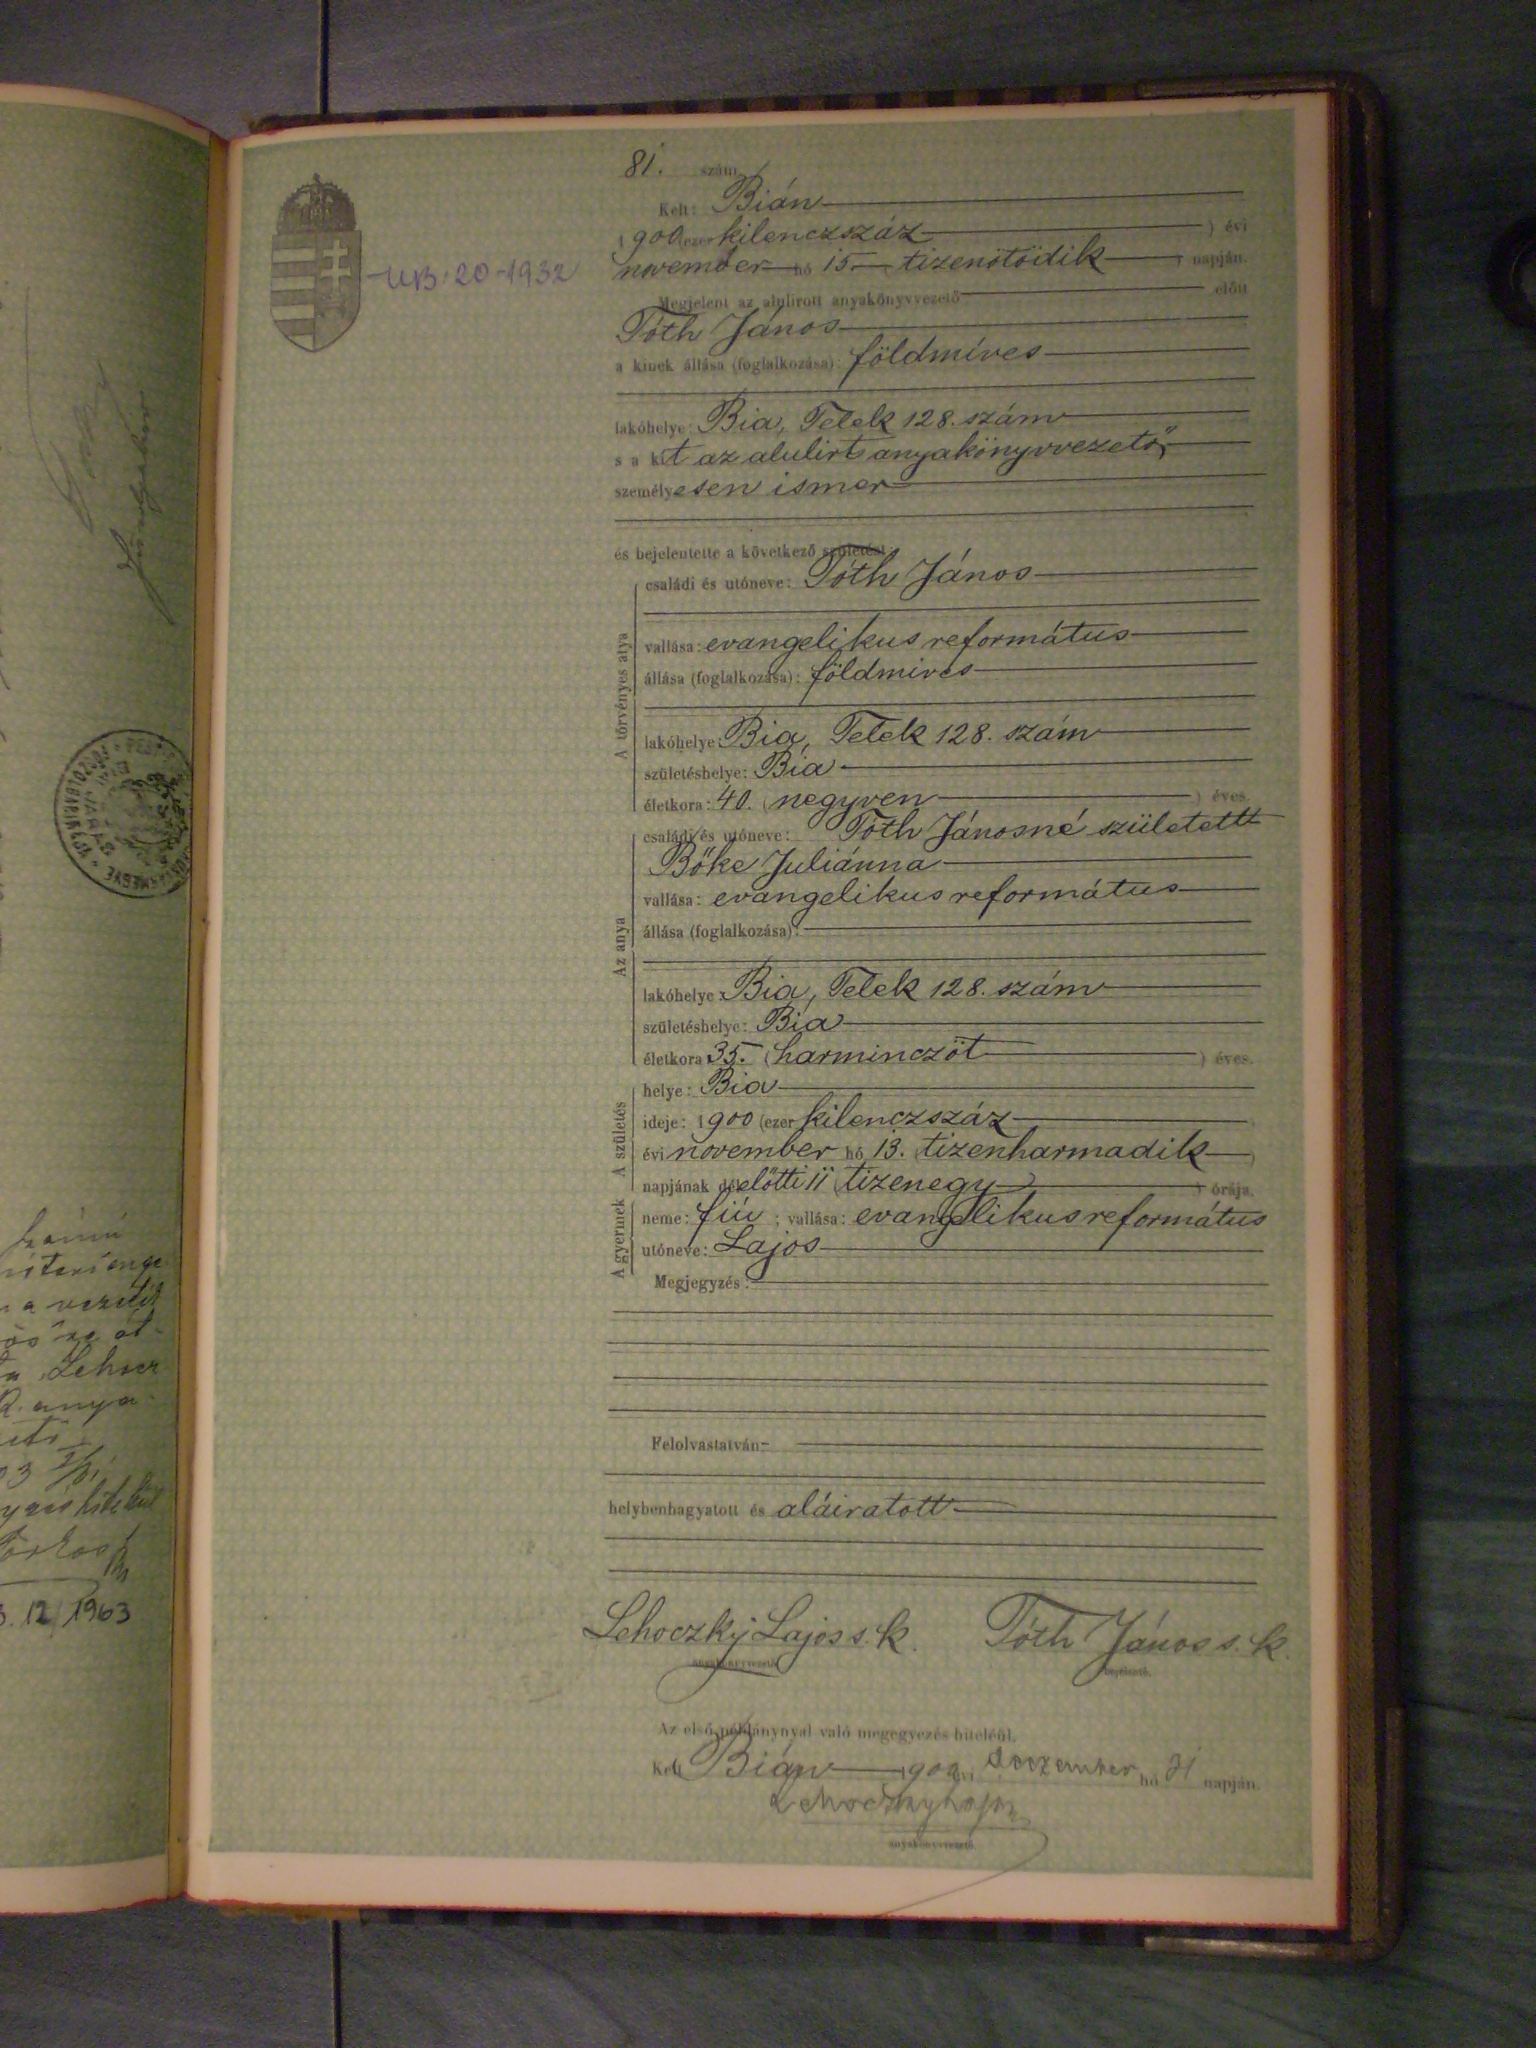 81. szám
Kelt: Bián
1900 (ezer kilenczszáz ) évi
november hó 15. (tizenötödik ) napján.
Megjelent az alulirott anyakönyvvezető előtt
Tóth János
a kinek állása (foglalkozása): földmíves
lakóhelye: Bia, Telek 128. szám
s a kit az alulirt anyakönyvvezető
személyesen ismer
és bejelentette a következő születést
A törvényes atya
családi és utóneve: Tóth János
vallása: evangelikus református
állása (foglalkozása): földmives
lakóhelye: Bia, Telek 128. szám
születéshelye: Bia
életkora: 40. (negyven ) éves.
Az anya
családi és utóneve: Tóth Jánosné született
Bőke Juliánna
vallása: evangelikus református
állása (foglalkozása):
lakóhelye: Bia, Telek 128. szám
születéshelye: Bia
életkora 35. (harminczöt ) éves.
A születés
helye: Bia
ideje: 1900 (ezer kilenczszáz )
évi november hó 13. (tizenharmadik )
napjának délelőtti 11 (tizenegy ) órája.
A gyermek
neme: fiú ; vallása: evangelikus református
utóneve: Lajos
Megjegyzés:
Felolvastatván
helybenhagyatott és aláiratott
Lehoczky Lajos s. k. Tóth János s. k.
anyakönyvvezető bejelentő.
Az első példánynyal való megegyezés hiteléül.
Kelt Bián 1900 évi deczember hó 31 napján.
Lehoczky Lajos
anyakönyvvezető
UB. 20-1932
12 1963